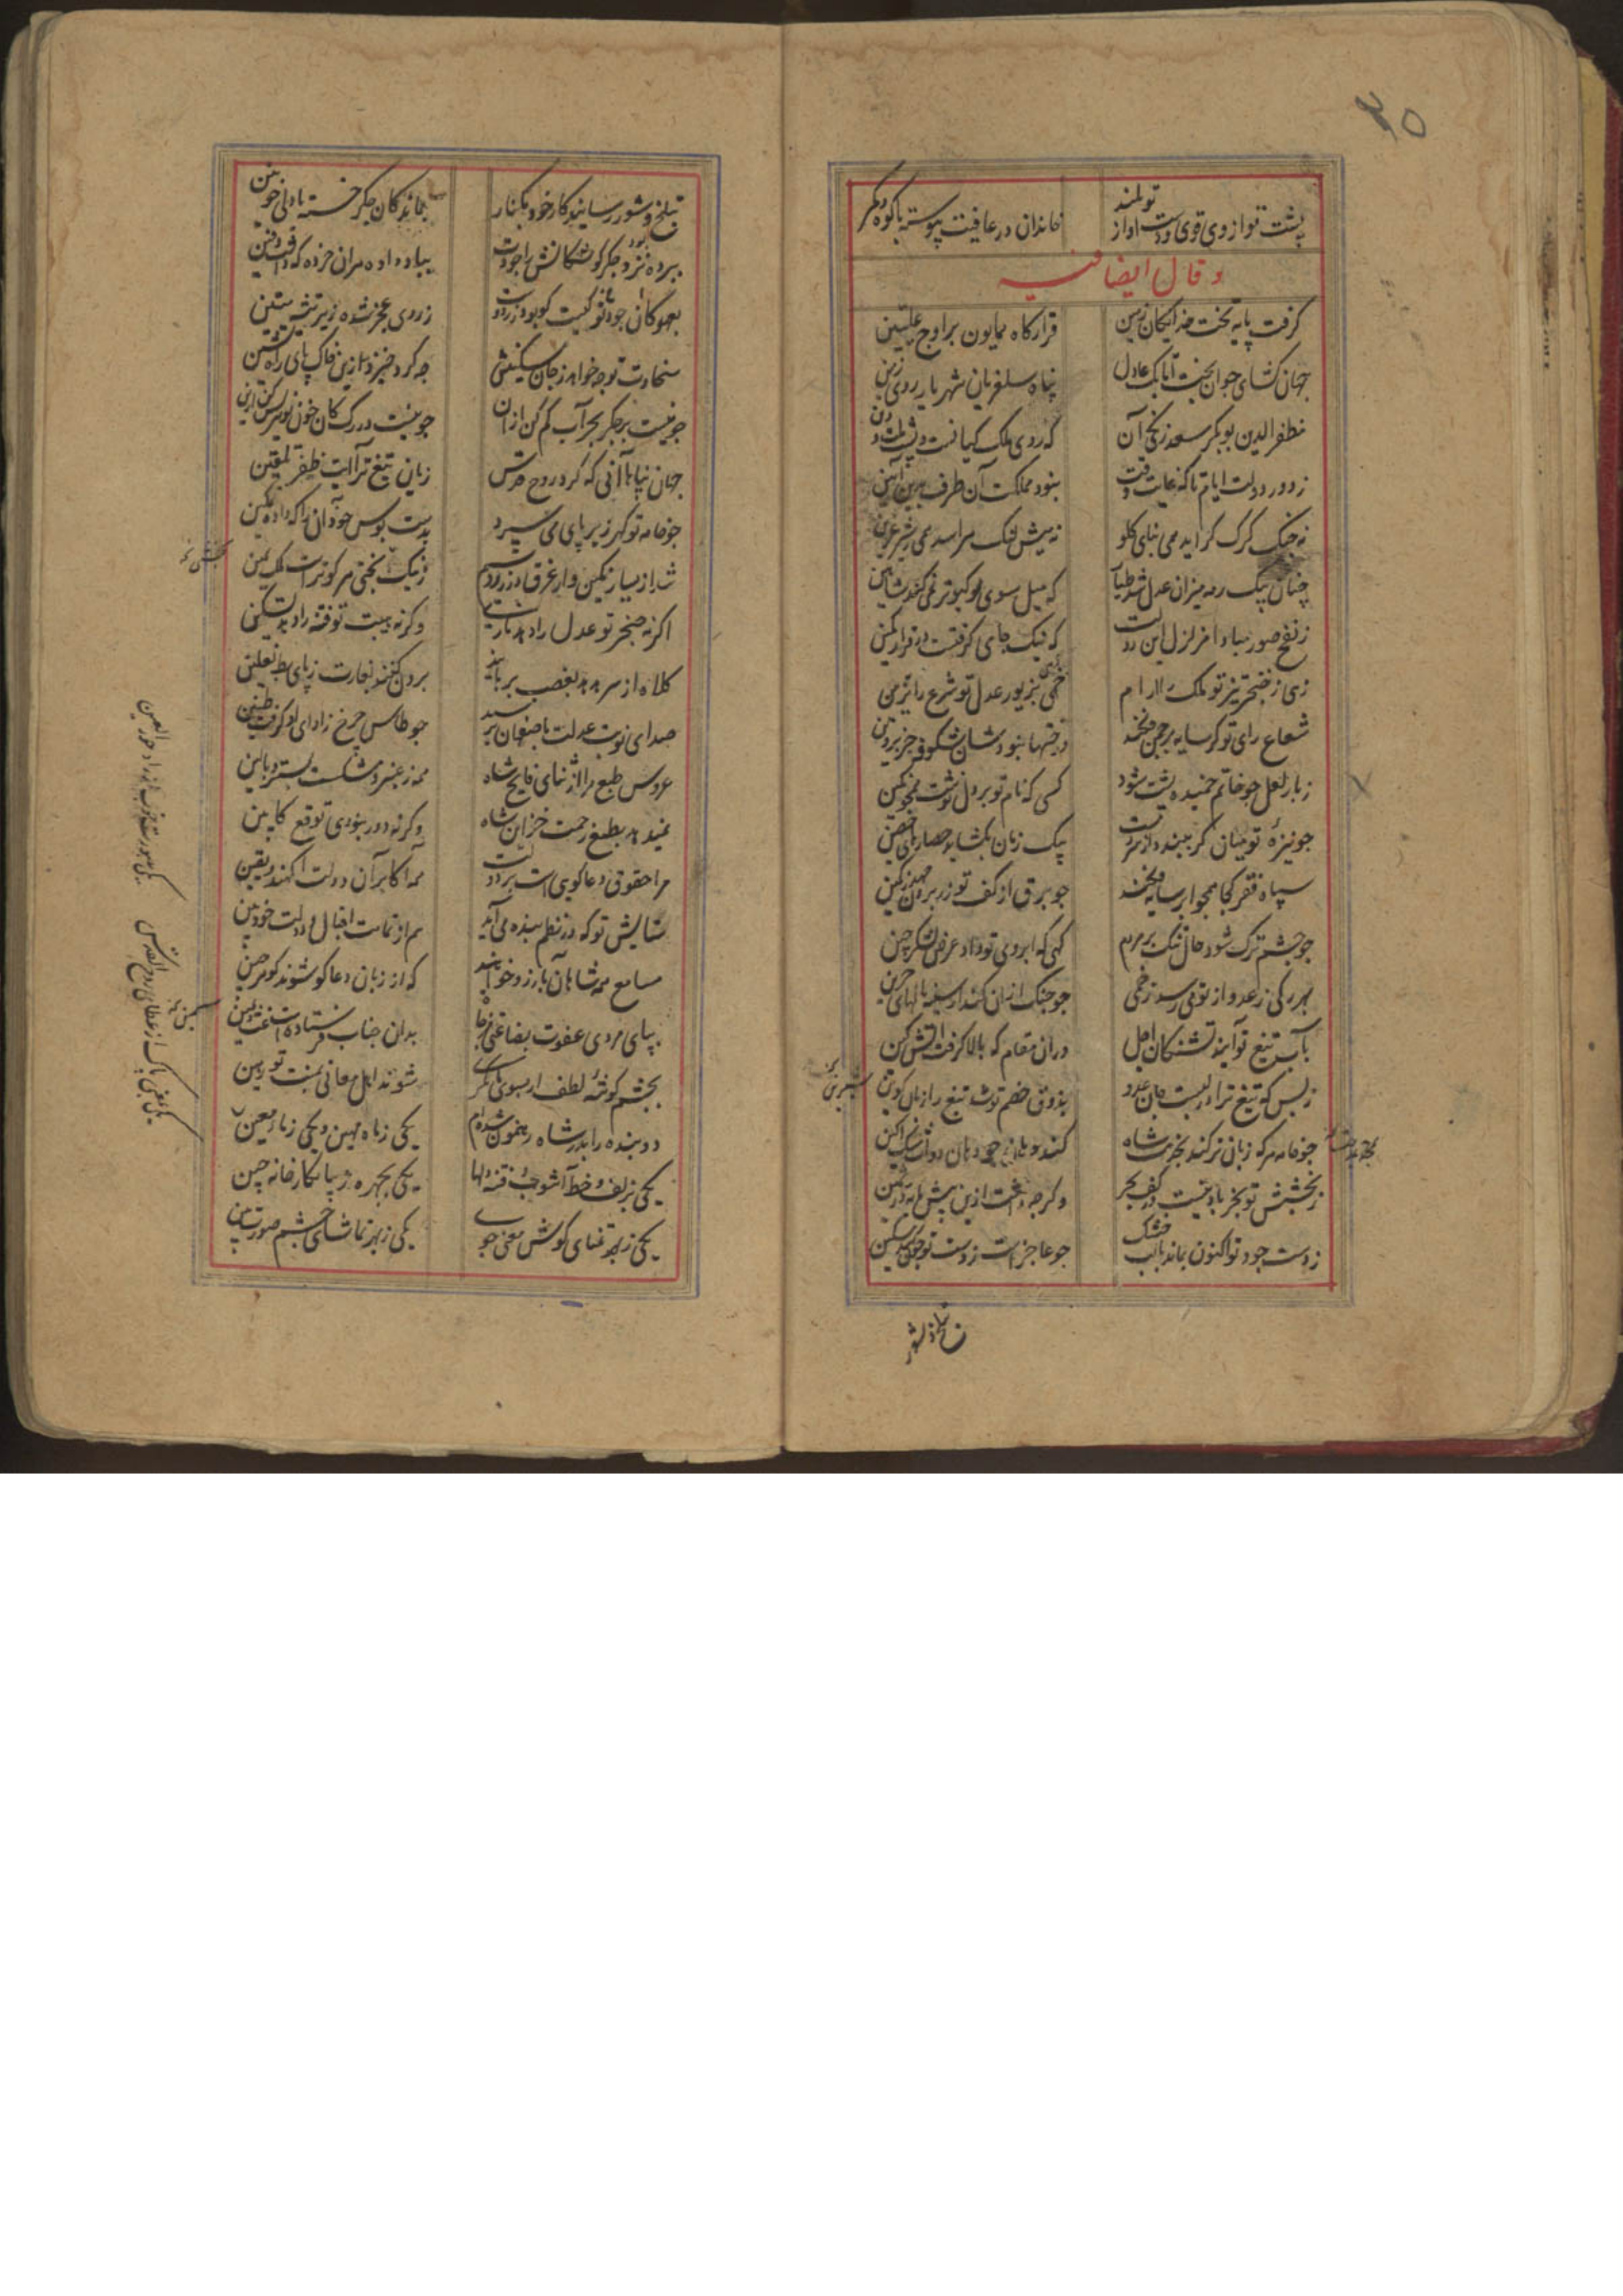 ۳۵
پشت تو از وی قوی و دست او از تو بلند خاندان در عافیت پیوسته با کوه و کمر
وقال ایضا فیه
گرفت پایه تخت خدایگان زمین قرارگاه همایون بر اوج علیین
جهان گشای جوان بخت اتابک عادل پناه سلغریان شهریار روی زمین
مظفر الدین بوبکر سعد زنگی آن که روی ملک کیانست و پشت
ز دور دولت ایام تا که عاقبت نبود مملکت آن طرف بدین آیین
نه جنگ گرگ گراید همی بنای گلو نه بیش فتک هراسد همی ز شیر عرین
چنان پیک ره میزان عدل شد طیار که میل سوی کبوتر نمی کند شاهین
ز نفخ صور مبادا تزلزل این دولت که نیک جای گرفتست در قرار مکین
زهی ز خنجر تیز تو ملک را آرام خهی بزیور عدل تو شرع را تزیین
شعاع رای تو گر سایه بر چمن فکند درختها نبود شان شکوفه جز پروین
ز بار لعل چو خاتم خمیده پشت شود کسی که نام تو بر دل نوشت همچو نگین
چو نیزهٔ تو میان گر ببندد از سر دست بیک زمان بگشاید حصارهای حصین
سپاه فقر کجا همچو ابر سایه فکند چو برق از کف تو زر برون جهد ز کمین
چو چشم ترک شود حال تنگ بر مردم گهی که ابروی تو داد عرض لشکر چین
بهر رگی ز عدو از تو می رسد زخمی چو چنگ از آن کند از سینه نالهای حزین
بآب تیغ تو آیند تشنگان اجل در آن مقام که بالا گرفت آتش کین
ز بس که تیغ ترا در لبست جان عدو بذوق خصم تو شد تیغ را زبان
چو خامه هر که زبان تر کند بخدمت شاه کنند چو دهان دوات مشک آگین
ز بخشش تو بجز باد نیست در کف بحر وگرچه داشت ازین پیش مایه
ز دست جود تو اکنون بماند با لب خشک چو عاجزست ز دست تو چون کند مسکین
بتلخ و شور رسانید کار خود بکنار بماند کان جگر خسته با دلی خونین
ببرده بود جگر گوشگانش را جودت بباد داده مر آن خرده که داشت دفین
بعهد کان جود تو کیست کو بود ز روی عجز نشده زیر تیشه
سخاوت تو چه خواهد ز جان مسکینش چه گرد خیزد ازین خاک پای راه نشین
چو نیست بر جگر بحر آب کم کن از آن چو نیست در رگ کان خون تو بیش مریز ازین
جهان پناها آنی که کرد روح قدس زبان تیغ ترا آیت ظفر تلقین
چو خامه تو گهر زیر پای می سپرد بدست بوس جود آن را که داده تمکین
شد از یسار نگین وار غرق در زر و سیم ز نیک بختی هر کو تراست ملک یمین
اگر نه خنجر تو عدل را دهد یاری وگرنه هیبت تو فتنه را دهد تسکین
کلاه از سر هدهد بغصب بربایند برون کنند بغارت ز پای بط نعلین
صدای نوبت عدلت باصفهان برسید چو طاس چرخ ز آوای او گرفت طنین
عروس طبع مرا از ثنای فایح شاه همه ز عنبر و مشکست بستر و بالین
نمی دهد بطمع رحمت خزاین شاه وگرنه دور نبودی توقع کابین
مرا حقوق دعا گویی است بر دولت همه اکابر آن دولت آگهند یقین
ستایش تو که در نظم بنده می آید هم از تمامت اقبال دولت خود بین
مسامع همه شاهان بآرزو خواهند که از زبان دعا گو شوند گوهر چین
بپای مردی عفوت بضاعتی مزجا بدان جناب فرستاده است غث و سمین
بچشم گوشهٔ لطف ار بسوی ما نگری شوند اهل معانی بمنت تو رهین
دو بنده را بدر شاه رهنمون شده ام یکی ز ماه مهین و یکی ز ماء معین
یکی بزلف و خط آشوب و فتنه دلها یکی بچهره زیبا نگارخانه چین
یکی ز بهر تمنای گوش معنی جوی یکی ز بهر تماشای چشم صورت بین
یکی بمعنی پاک از عطای روح القدس
یکی بصورت خوب از نژاد حور العین